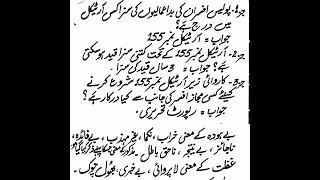 ج1۔ پولیس افسران کی بداعمالیوں کی سزا کس آرٹیکل
میں درج ہے؟
جواب = آرٹیکل نمبر 155
ج2۔ آرٹیکل نمبر 155 کے تحت کتنی سزا قید ہو سکتی
ہے؟ جواب = 3 سال قید کی سزا
ج3۔ کاروائی زیر آرٹیکل نمبر 155 شروع کرنے
کیلئے کسی مجاز افسر کی جانب سے کیا درکار ہے؟
جواب = رپورٹ تحریری۔
بے ہودہ کے معنی خراب، نکما، غیر مہذب، بے فائدہ،
ناجائز، بے نتیجہ، ناحق باطل۔
غفلت کے معنی لاپروائی، بے خبری، بھول چوک۔